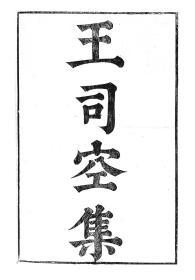 王司空集